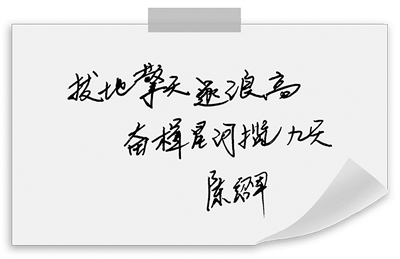 拔地擎天逐浪高
奋楫星河揽九天
陈绍军